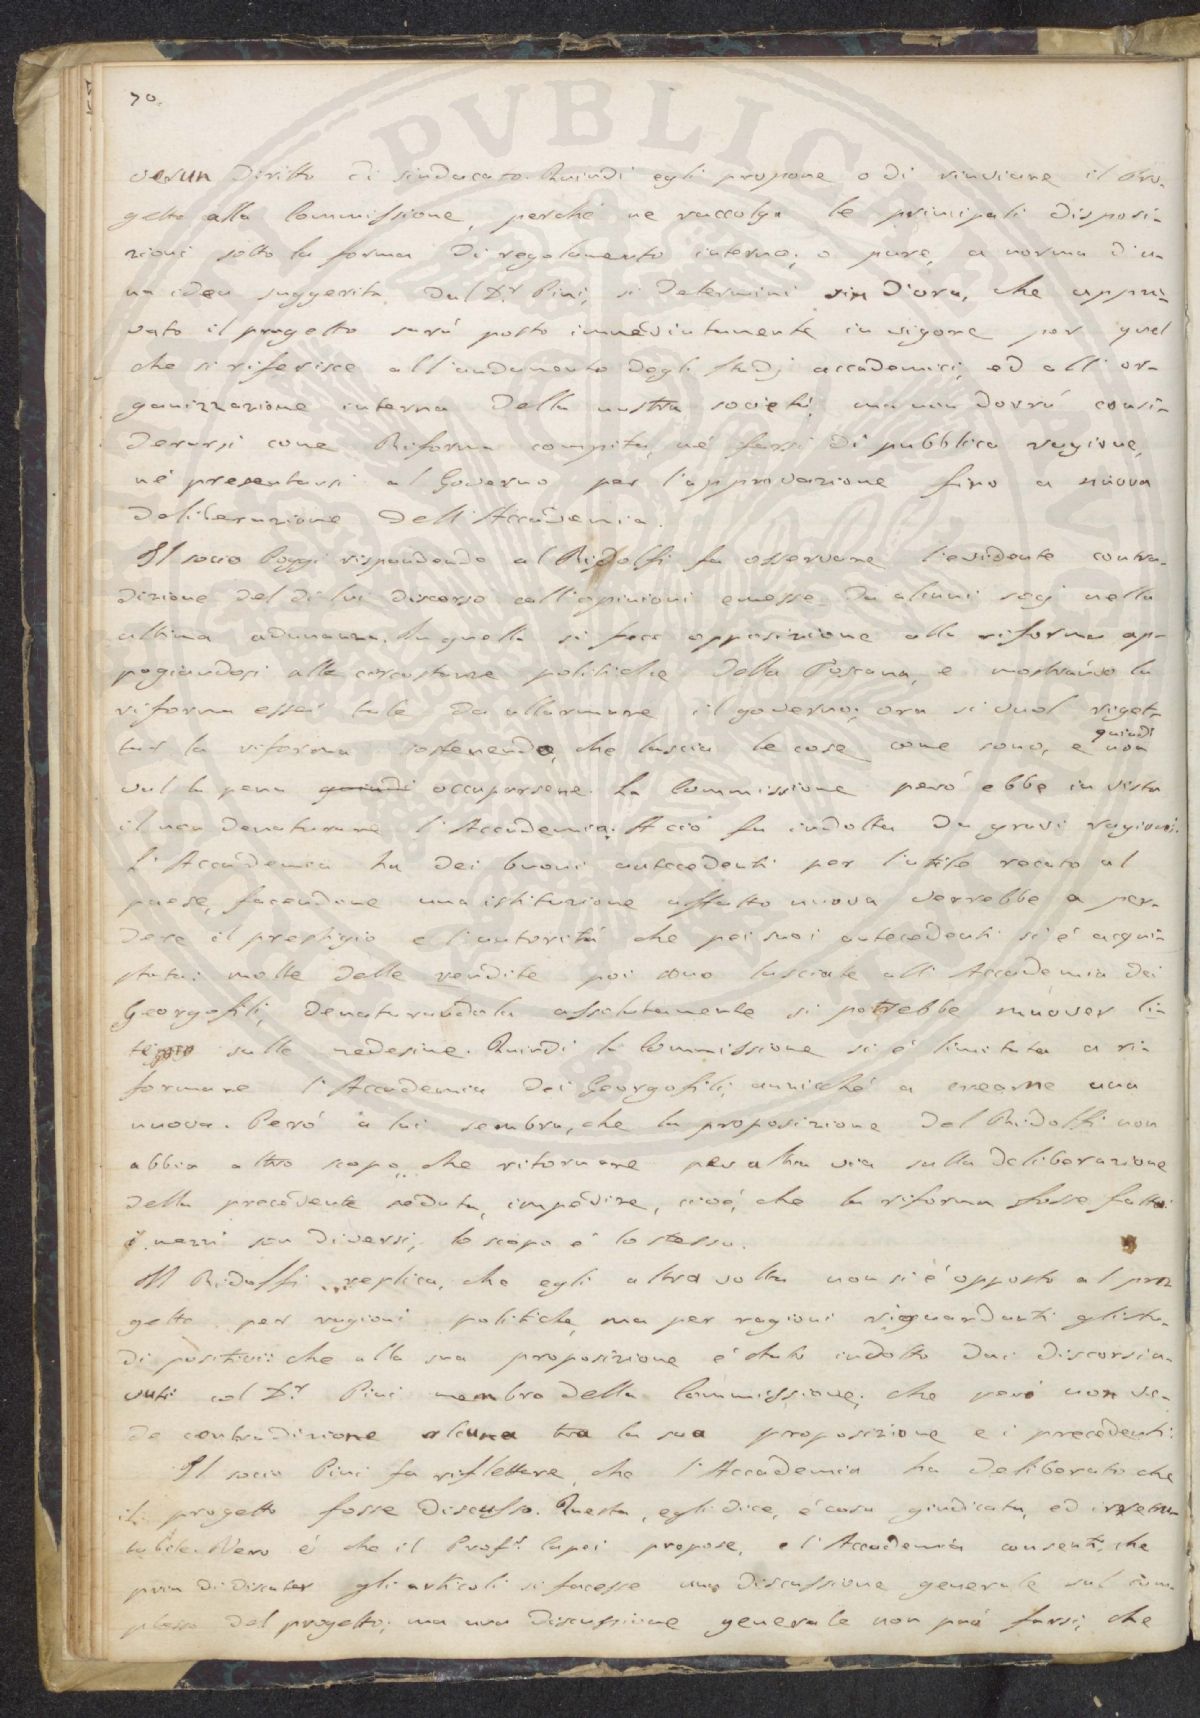 70.
verun diritto di sindacato. Quindi egli propone o di rinviare il Pro-
getto alla Commissione, perché ne raccolga le principali disposi-
zioni sotto la forma di regolamento interno; o pure, a norma d'u
na idea suggerita dal Dr. Pini, si determini sin d'ora, che appro-
vato il progetto sarà posto immediatamente in vigore per quel
che si riferisce all'andamento degli studj accademici, ed all'or-
ganizzazione interna della nostra società, ma non dovrà consi-
derarsi come Riforma compita, né farsi di pubblica ragione,
né presentarsi al Governo per l'approvazione fino a nuova
deliberazione dell'Accademia.
Il socio Poggi rispondendo al Ridolfi fa osservare l'evidente contra-
dizione del di lui discorso coll'opinioni emesse da alcuni socj nella
ultima adunanza. In quella si fece opposizione alla riforma ap-
pogiandosi alle circostanze politiche della Toscana, e mostrando la
riforma esser tale da allarmare il governo; ora si vuol riget-
tar la riforma sostenendo, che lascia le cose come sono, e quindi non
val la pena quindi occuparsene. La Commissione però ebbe in vista
il non denaturare l'Accademia. A ciò fu indotta da gravi ragioni.
L'Accademia ha dei buoni antecedenti per l'utile recato al
paese, facendone una istituzione affatto nuova verrebbe a per-
dere il prestigio e l'autorità che pei suoi antecedenti si è acqui-
stata: molte delle rendite poi sono lasciate all'Accademia dei
Georgofili, denaturandola assolutamente si potrebbe muover li-
tigio sulle medesime. Quindi la Commissione si è limitata a ri-
formare l'Accademia dei Georgofili, anniché a crearne una
nuova. Però a lui sembra, che la proposizione del Ridolfi non
abbia altro scopo, che ritornare per altra via sulla deliberazione
della precedente seduta, impedire, cioè, che la riforma fosse fatta:
i mezzi son diversi, lo scopo è lo stesso.
Il Ridolfi replica, che egli altra volta non si è opposto al pro-
getto per ragioni politiche, ma per ragioni riguardanti gli stu-
di positivi: che alla sua proposizione è stato indotto dai discorsi a-
vuti col Dr. Pini membro della Commissione; che però non ve-
de contradizione alcuna tra la sua proposizione e i precedenti.
Il socio Pini fa riflettere, che l'Accademia ha deliberato che
il progetto fosse discusso. Questa, egli dice, è cosa giudicata, ed irretrat-
tabile. Vero è che il Profr. Capei propose, e l'Accademia consentì, che
pria di discuter gli articoli si facesse una discussione generale sul com-
plesso del progetto; ma una discussione generale non può farsi, che